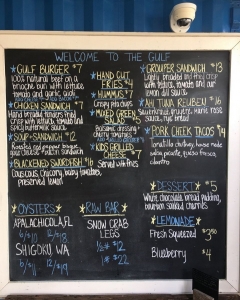 WELCOME TO THE GULF
★ GULF BURGER $7
100% natural beef on a
brioche bun with lettuce
tomato and garlic aioli
★ CHICKEN SANDWICH $7
Hand breaded tenders fried
crisp with lettuce, tomato and
spicy buttermilk sauce
★ SOUP + SANDWICH $12
Roasted red pepper bisque
★ BLACKENED SWORDFISH $16
Couscous, baby tomatoes,
preserved lemon
★ OYSTERS
APALACHICOLA, FL
6/$11 12/$18
SHIGOKU, WA
6/$11 12/$19
HAND CUT
FRIES $4
HUMMUS $7
Crispy pita chips
MIXED GREEN
SALAD
Balsamic dressing
cherry tomatoes
KIDS GRILLED
CHEESE
Served with fries
★ RAW BAR ★
SNOW CRAB
LEGS
1/2# $12
1# $22
★ GROUPER SANDWICH $13
Lightly breaded and fried crisp
with lettuce, tomato and our
lemon dill sauce
★ AHI TUNA REUBEN $16
sauce, rye bread
★ PORK CHEEK TACOS $9
Tomatillo chutney, house made
salsa picante, queso fresco,
cilantro
DESSERT $5
White chocolate bread pudding,
bourbon salted caramel
★ LEMONADE ★
Fresh Squeezed $3.50
Blueberry $4